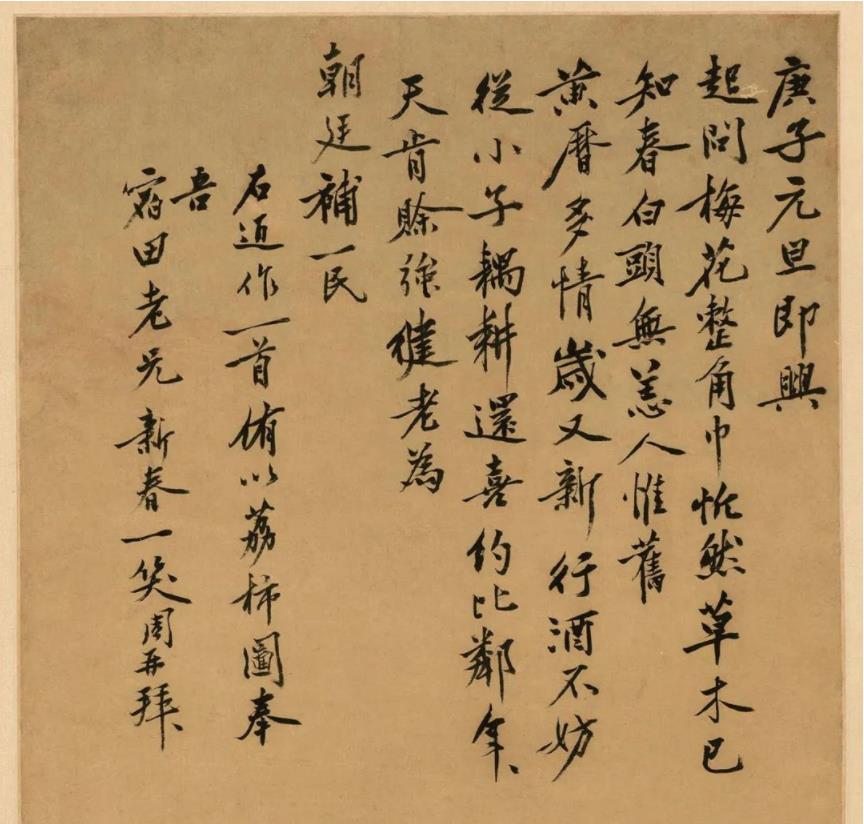 庚子元旦即興
起問梅花整角巾恍然草木已
知春白頭無恙人惟舊
黃曆多情歲又新行酒不妨
從小子耦耕還喜約比鄰年年
天肯賒強健老為
朝廷補一民
右近作一首侑以荔柿圖奉
吾
宿田老兄新春一笑周再拜